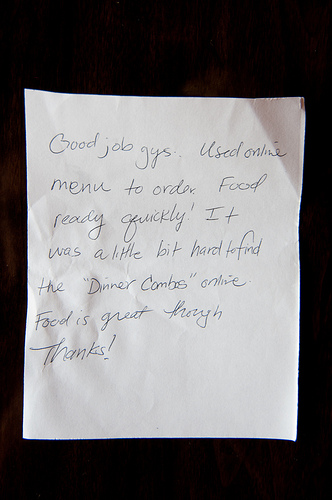 Good job gys. Used online
menu to order. Food
ready quickly! It
was a little bit hard to find
the "Dinner Combos" online
Food is great though
Thanks!